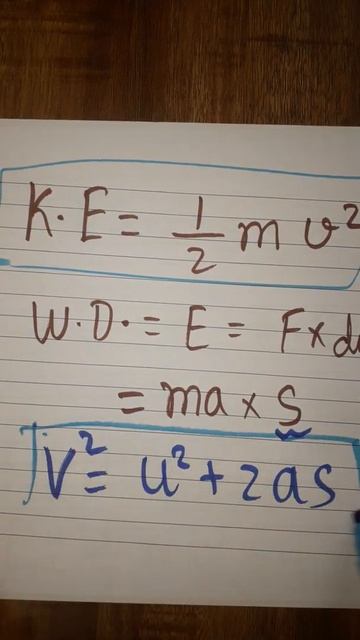 K.E = 1/2 m v²
W.D. = E = F x
= ma x S
V² = u² + 2as